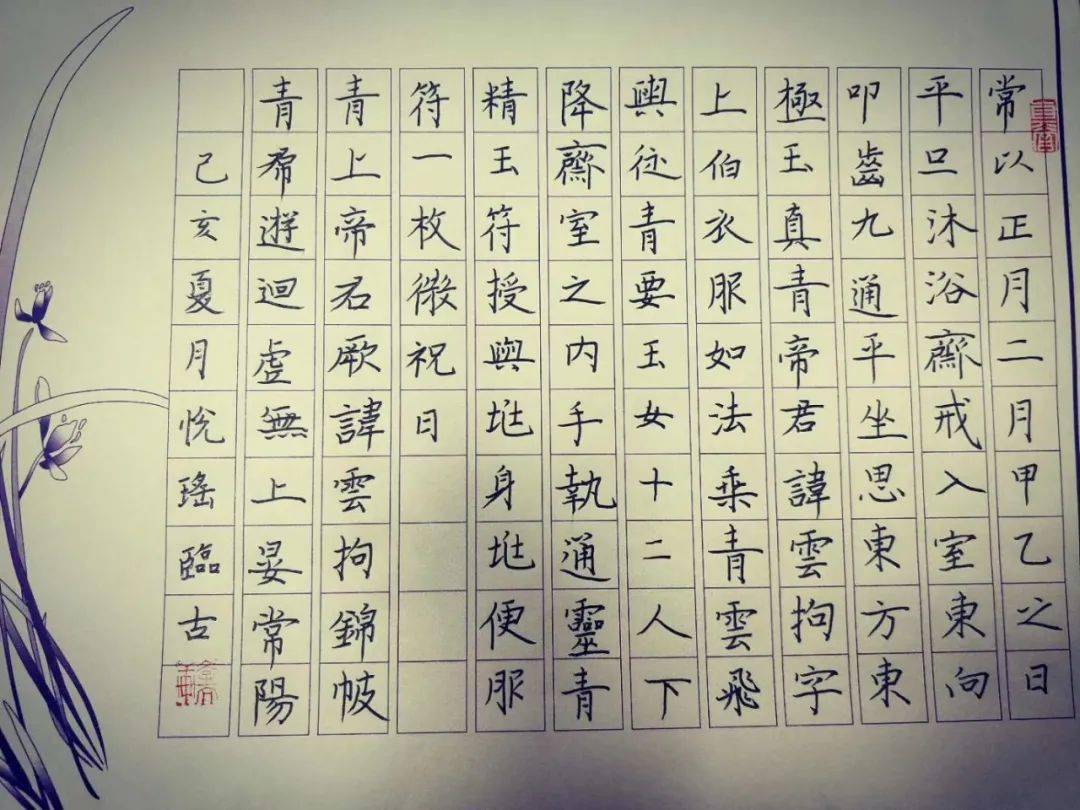 常以正月二月甲乙之日
平旦沐浴齋戒入室東向
叩齒九通平坐思東方東
極玉真青帝君諱雲拘字
上伯衣服如法乘青雲飛
輿從青要玉女十二人下
降齋室之内手執通靈青
精玉符授與兆身兆便服
符一枚微祝曰
青上帝君厥諱雲拘錦帔
青帬遊迴虛無上晏常陽
己亥夏月悦瑤臨古